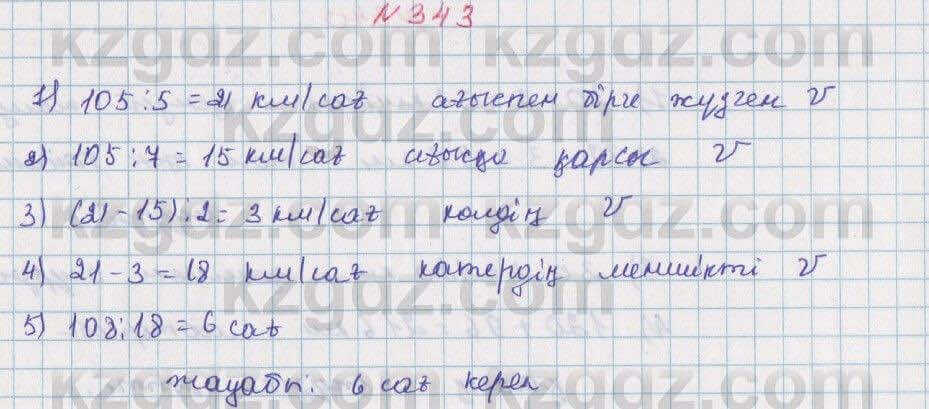 N 343
1) 105 : 5 = 21 км/сағ ағыспен бірге жүзген V
2) 105 : 7 = 15 км/сағ ағысқа қарсы V
3) (21 - 15) : 2 = 3 км/сағ көлдің V
4) 21 - 3 = 18 км/сағ катердің меншікті V
5) 108 : 18 = 6 сағ
жауабы: 6 сағ керек